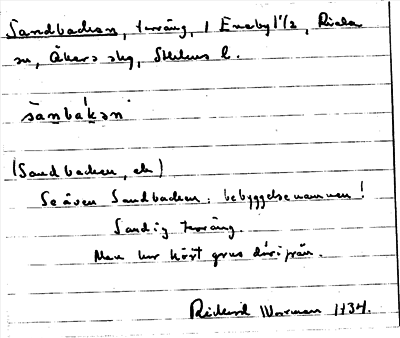 Sandbacken, terräng, 1 Eneby 1 1/2, Riala
sn, Åkers skg, Sthlms l.
sànbákən
(Sandbacken, ek)
Se även Sandbacken: bebyggelsenamnen!
Sandig terräng.
Man har kört grus därifrån.
Richard Warman 1934.